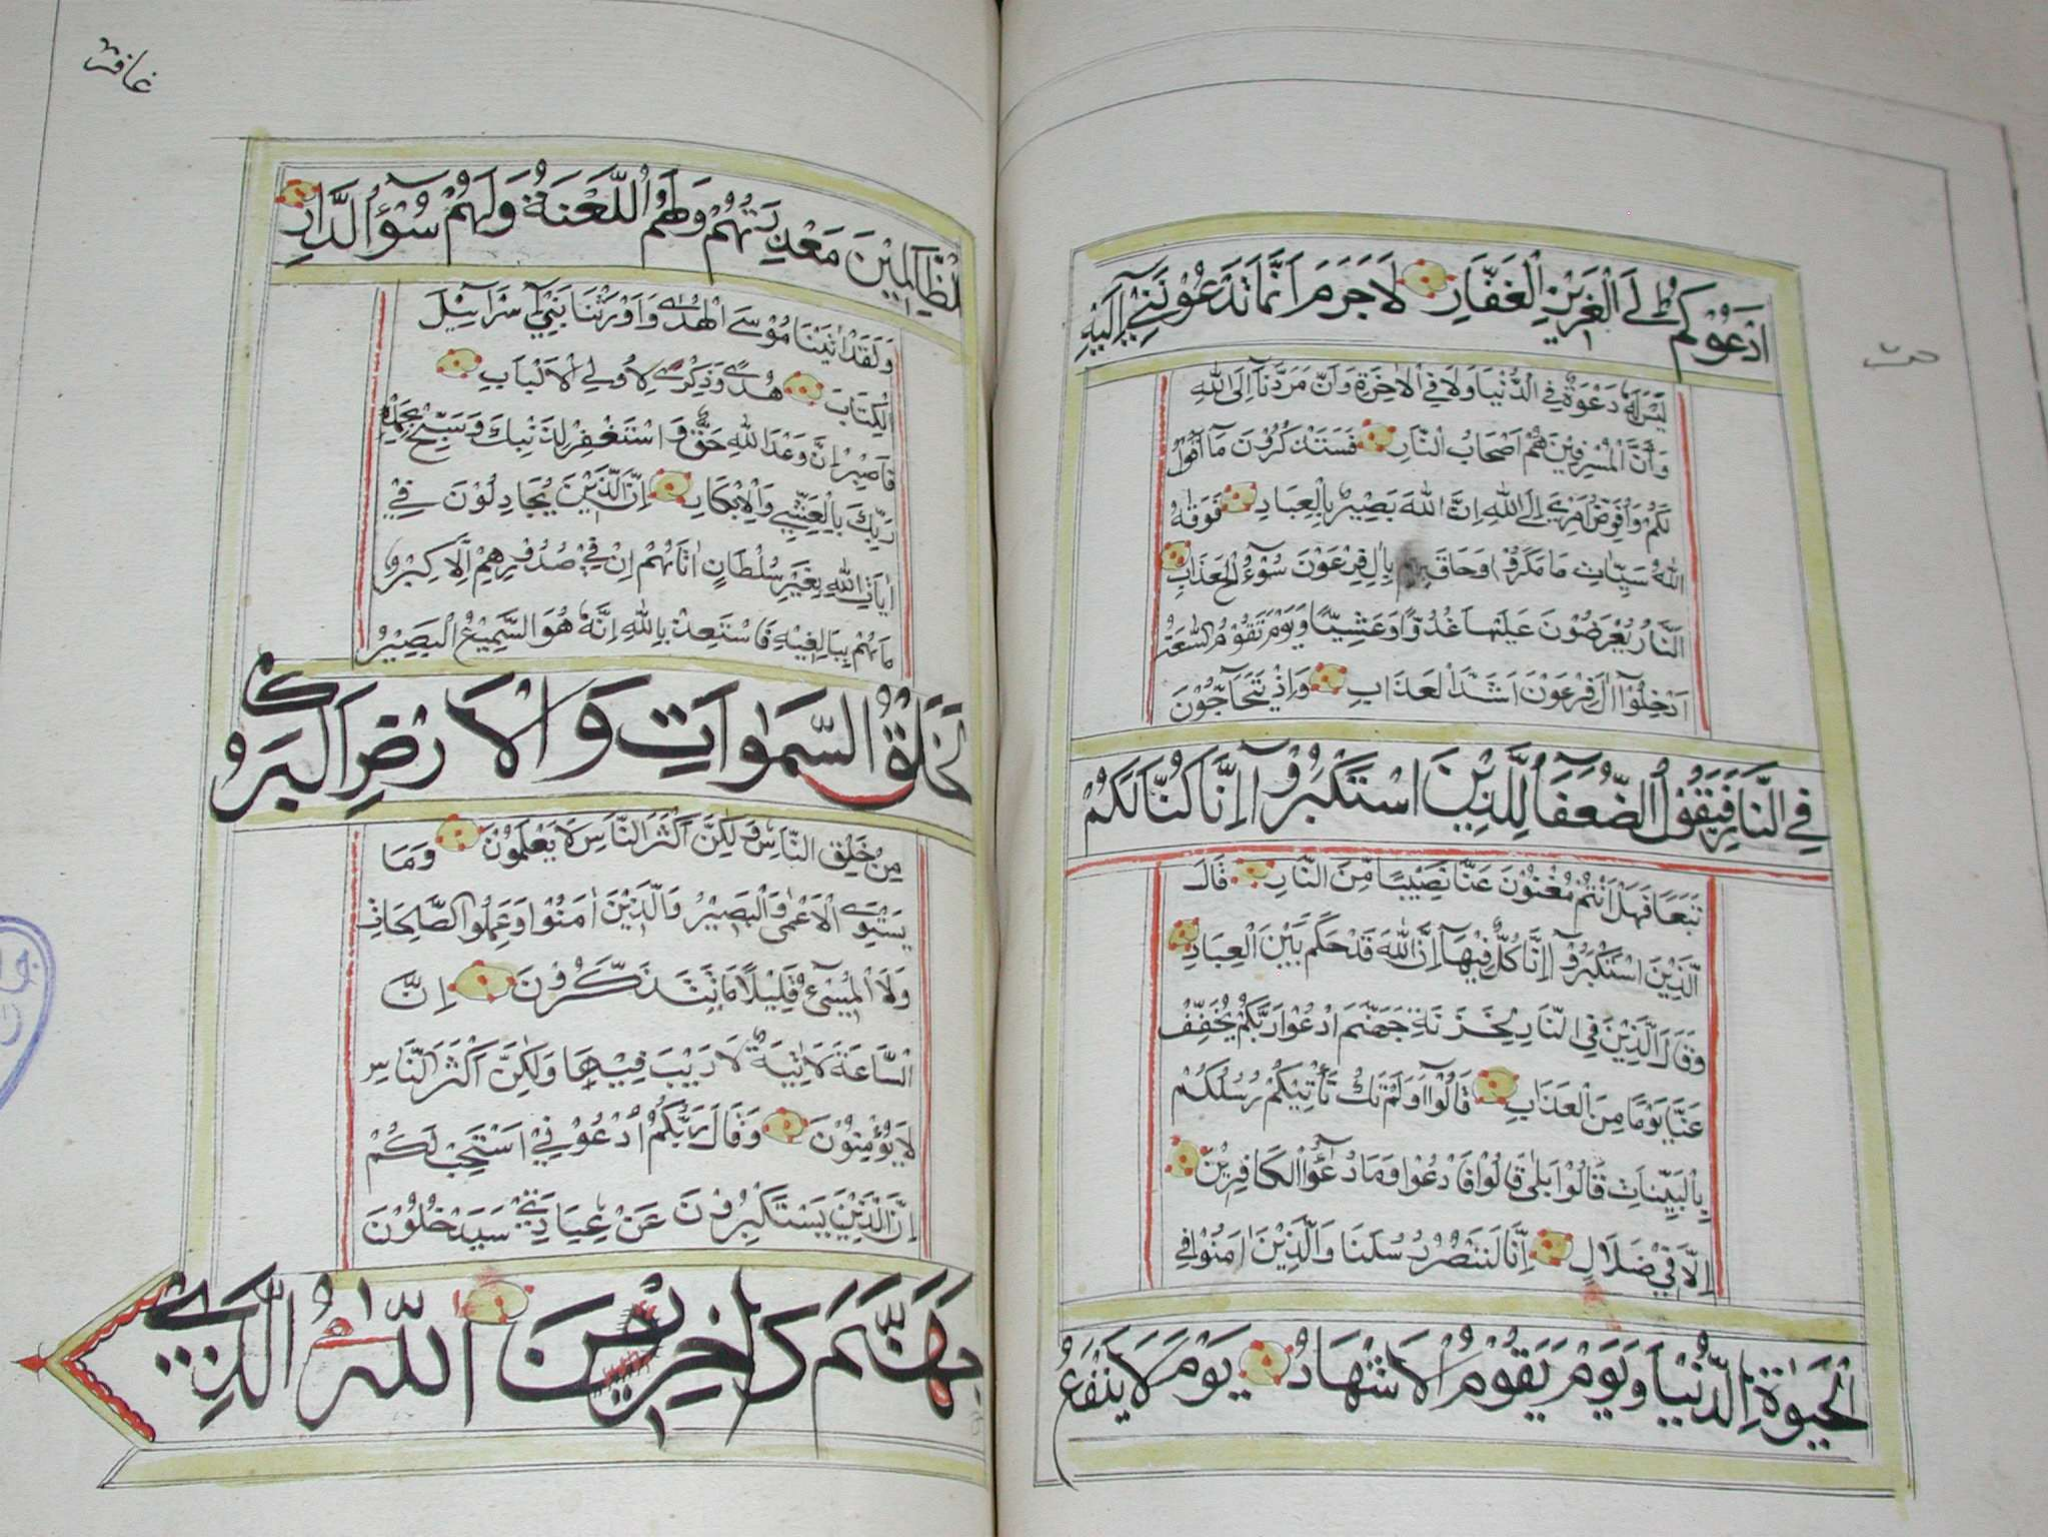 ادْعُوكُمْ إِلَى الْعَزِيزِ الْغَفَّارِ لَا جَرَمَ اَنَّمَا تَدْعُونَنِي إِلَيْهِ
لَيْسَ لَهُ دَعْوَةٌ فِي الدُّنْيَا وَلَا فِي الْاٰخِرَةِ وَاَنَّ مَرَدَّنَا إِلَى اللهِ
وَاَنَّ الْمُسْرِفِينَ هُمْ اَصْحَابُ النَّارِ فَسَتَذْكُرُونَ مَا اَقُولُ
لَكُمْ وَاُفَوِّضُ اَمْرِي إِلَى اللهِ اِنَّ اللهَ بَصِيرٌ بِالْعِبَادِ فَوَقٰهُ
اللهُ سَيِّئَاتِ مَا مَكَرُوا وَحَاقَ بِاٰلِ فِرْعَوْنَ سُوْءُ الْعَذَابِ
النَّارُ يُعْرَضُونَ عَلَيْهَا غُدُوًّا وَعَشِيًّا وَيَوْمَ تَقُومُ السَّاعَةُ
اَدْخِلُوا اٰلَ فِرْعَوْنَ اَشَدَّ الْعَذَابِ وَاِذْ يَتَحَاجُّونَ
فِي النَّارِ فَيَقُولُ الضُّعَفَآءُ لِلَّذِينَ اسْتَكْبَرُوا اِنَّا كُنَّا لَكُمْ
تَبَعًا فَهَلْ اَنْتُمْ مُغْنُونَ عَنَّا نَصِيبًا مِنَ النَّارِ قَالَ
الَّذِينَ اسْتَكْبَرُوا اِنَّا كُلٌّ فِيهَا اِنَّ اللهَ قَدْ حَكَمَ بَيْنَ الْعِبَادِ
وَقَالَ الَّذِينَ فِي النَّارِ لِخَزَنَةِ جَهَنَّمَ ادْعُوا رَبَّكُمْ يُخَفِّفْ
عَنَّا يَوْمًا مِنَ الْعَذَابِ قَالُوا اَوَلَمْ تَكُ تَأْتِيكُمْ رُسُلُكُمْ
بِالْبَيِّنَاتِ قَالُوا بَلٰى قَالُوا فَادْعُوا وَمَا دُعَآؤُا الْكَافِرِينَ
اِلَّا فِي ضَلَالٍ اِنَّا لَنَنْصُرُ رُسُلَنَا وَالَّذِينَ اٰمَنُوا فِي
الْحَيٰوةِ الدُّنْيَا وَيَوْمَ يَقُومُ الْاَشْهَادُ يَوْمَ لَا يَنْفَعُ
غافر
الظَّالِمِينَ مَعْذِرَتُهُمْ وَلَهُمُ اللَّعْنَةُ وَلَهُمْ سُوْءُ الدَّارِ
وَلَقَدْ اٰتَيْنَا مُوسَى الْهُدٰى وَاَوْرَثْنَا بَنِي اِسْرَآئِيلَ
الْكِتَابَ هُدًى وَذِكْرٰى لِاُولِي الْاَلْبَابِ
فَاصْبِرْ اِنَّ وَعْدَ اللهِ حَقٌّ وَاسْتَغْفِرْ لِذَنْبِكَ وَسَبِّحْ بِحَمْدِ
رَبِّكَ بِالْعَشِيِّ وَالْاِبْكَارِ اِنَّ الَّذِينَ يُجَادِلُونَ فِي
اٰيَاتِ اللهِ بِغَيْرِ سُلْطَانٍ اَتَاهُمْ اِنْ فِي صُدُورِهِمْ اِلَّا كِبْرٌ
مَاهُمْ بِبَالِغِيهِ فَاسْتَعِذْ بِاللهِ اِنَّهُ هُوَ السَّمِيعُ الْبَصِيرُ
لَخَلْقُ السَّمٰوَاتِ وَالْاَرْضِ اَكْبَرُ
مِنْ خَلْقِ النَّاسِ وَلٰكِنَّ اَكْثَرَ النَّاسِ لَا يَعْلَمُونَ وَمَا
يَسْتَوِي الْاَعْمٰى وَالْبَصِيرُ وَالَّذِينَ اٰمَنُوا وَعَمِلُوا الصَّالِحَاتِ
وَلَا الْمُسِيْءُ قَلِيلًا مَا تَتَذَكَّرُونَ اِنَّ
السَّاعَةَ لَاٰتِيَةٌ لَا رَيْبَ فِيهَا وَلٰكِنَّ اَكْثَرَ النَّاسِ
لَا يُؤْمِنُونَ وَقَالَ رَبُّكُمُ ادْعُونِي اَسْتَجِبْ لَكُمْ
اِنَّ الَّذِينَ يَسْتَكْبِرُونَ عَنْ عِبَادَتِي سَيَدْخُلُونَ
جَهَنَّمَ دَاخِرِينَ اَللهُ الَّذِي